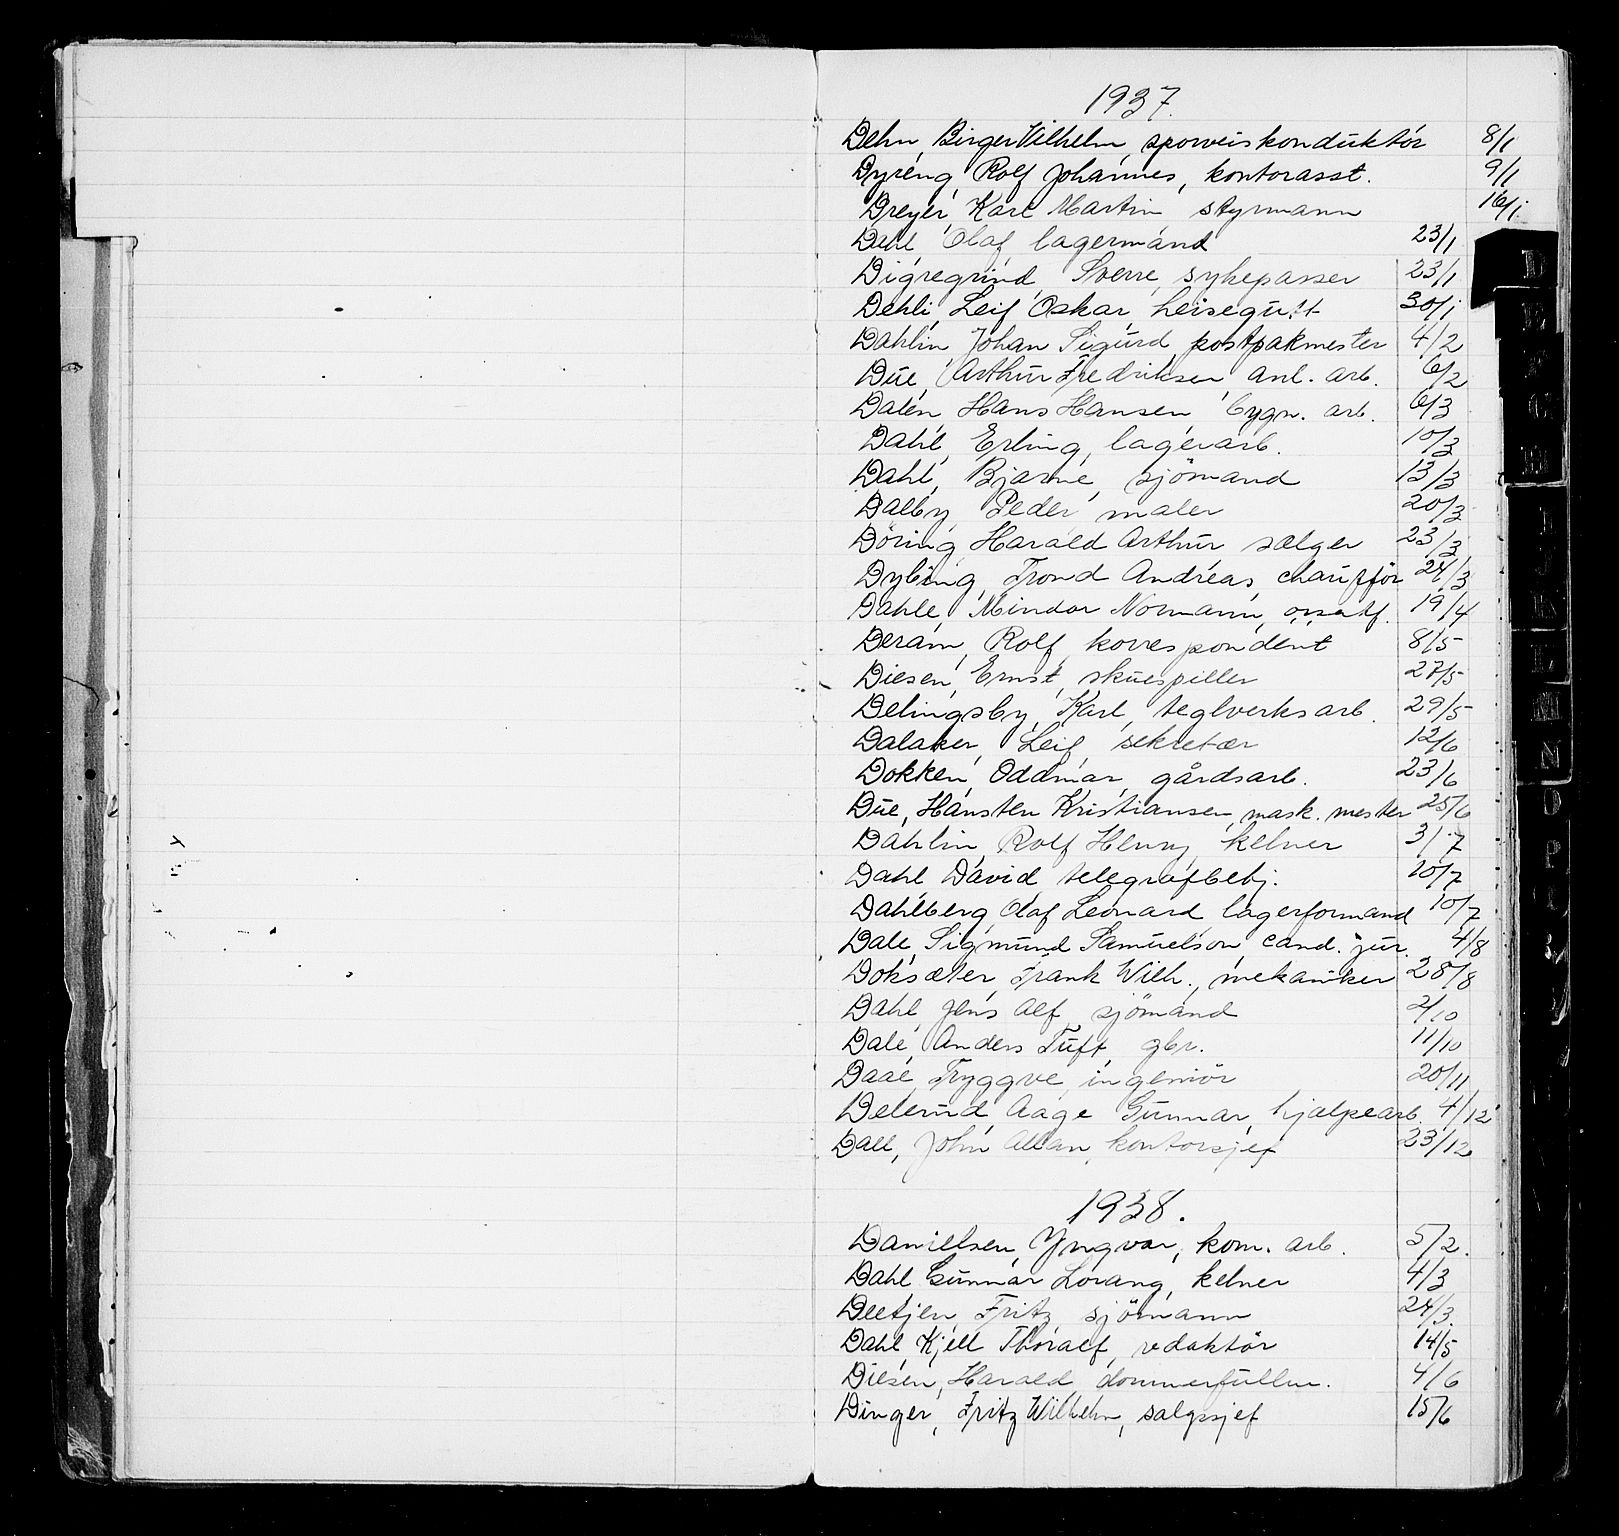 1937.
Dehn, Birger Vilhelm sporveiskonduktör 8/1
Dyreng, Rolf Johannes, kontorasst. 9/1
Dreyer, Karl Martin styrmann 16/1
Dahl Olaf lagermand 23/1
Digregrind, Sverre, sykepasser 23/1
Dehli, Leif Oskar, heisegutt 30/1
Dahlin Johan Sigurd postpakmester 4/2
Due, Arthur Fredriksen anl. arb. 6/2
Dalen Hans Hansen bygn. arb. 6/3
Dahl, Erling, lagerarb. 10/3
Dahl, Bjarne, sjömand 13/3
Dalby Peder maler 20/3
Döring Harald Arthur sælger 23/3
Dybing, Trond Andreas, chaufför 24/3
Dahle, Mindor Normann, 19/4
Deram, Rolf, korrespondent 8/5
Diesen, Ernst, skuespiller 27/5
Delingsby, Karl, teglverksarb. 29/5
Dalaker, Leif sekretær 12/6
Dokken, Oddmar, gårdsarb. 23/6
Due, Hansten Kristiansen, mask. mester 25/6
Dahlin, Rolf Henry kelner 3/7
Dahl David telegrafbetj. 10/7
Dahlberg, Olaf Leonard lagerformand 10/7
Dale, Sigmund Samuelson cand. jur. 4/8
Doksæter, Frank Wilh., mekaniker 28/8
Dahl, Jens Alf sjömand 2/10
Dale, Anders Tuft, gbr. 11/10
Daae, Tryggve, ingeniör 20/11
Delerud, Aage Gunnar, hjælpearb. 4/12
Dall, John Allan, kontorsjef 23/12
1938.
Daniellsen, Yngvar, kom. arb. 5/2.
Dahl Gunnar Lorang, kelner 4/3
Deetjen, Fritz, sjömann 24/3.
Dahl, Kjell Thoralf, redaktör 14/5
Diesen, Harald dommerfullm. 4/6
Dinger, Fritz Wilhelm, salgssjef 15/6
D
E
F
G
H
I
J
K
L
M
N
O
P